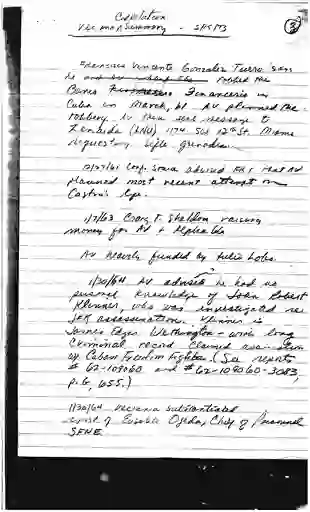 3
Veciana Summary - 5/15/73
Francisco Vincente Gonzalez Tuero says
he robbed the
Banco Financiero in
Cuba on March, 61 AV planned the
robbery. AV then sent message to
(LNU) 1174 SW 12th St. Miami
requesting rifle grenades.
12/27/61 Conf. Source advised FBI that AV
planned most recent attempt on
Castro's life.
1/7/63 Craig T. Sheldon raising
money for AV & Alpha 66
AV mainly funded by Julio Lobo.
1/30/64 AV advised he had no
personal knowledge of John Robert
Klinner, who was investigated re
JFK assassination. Klinner is
James Edgar Worthington - with long
criminal record claimed
of Cuban Freedom Fighters. (See reports
# 62-109060 and # 62-109060-3083,
p. 6, USS.)
1/30/64 Veciana substantiated
of Eusebio Ojeda, Chief of Personnel
SFNE